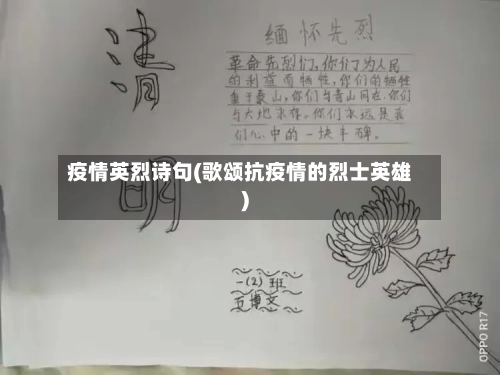 清
明
缅怀先烈
革命先烈们，你们了为人民
的利益而牺牲，你们的牺牲
重于泰山，你们与青山同在，你们
与大地永存。你们永远是我
们心中的一块丰碑。
疫情英烈诗句(歌颂抗疫情的烈士英雄
)
一(2)班
王博文
OPPO R17